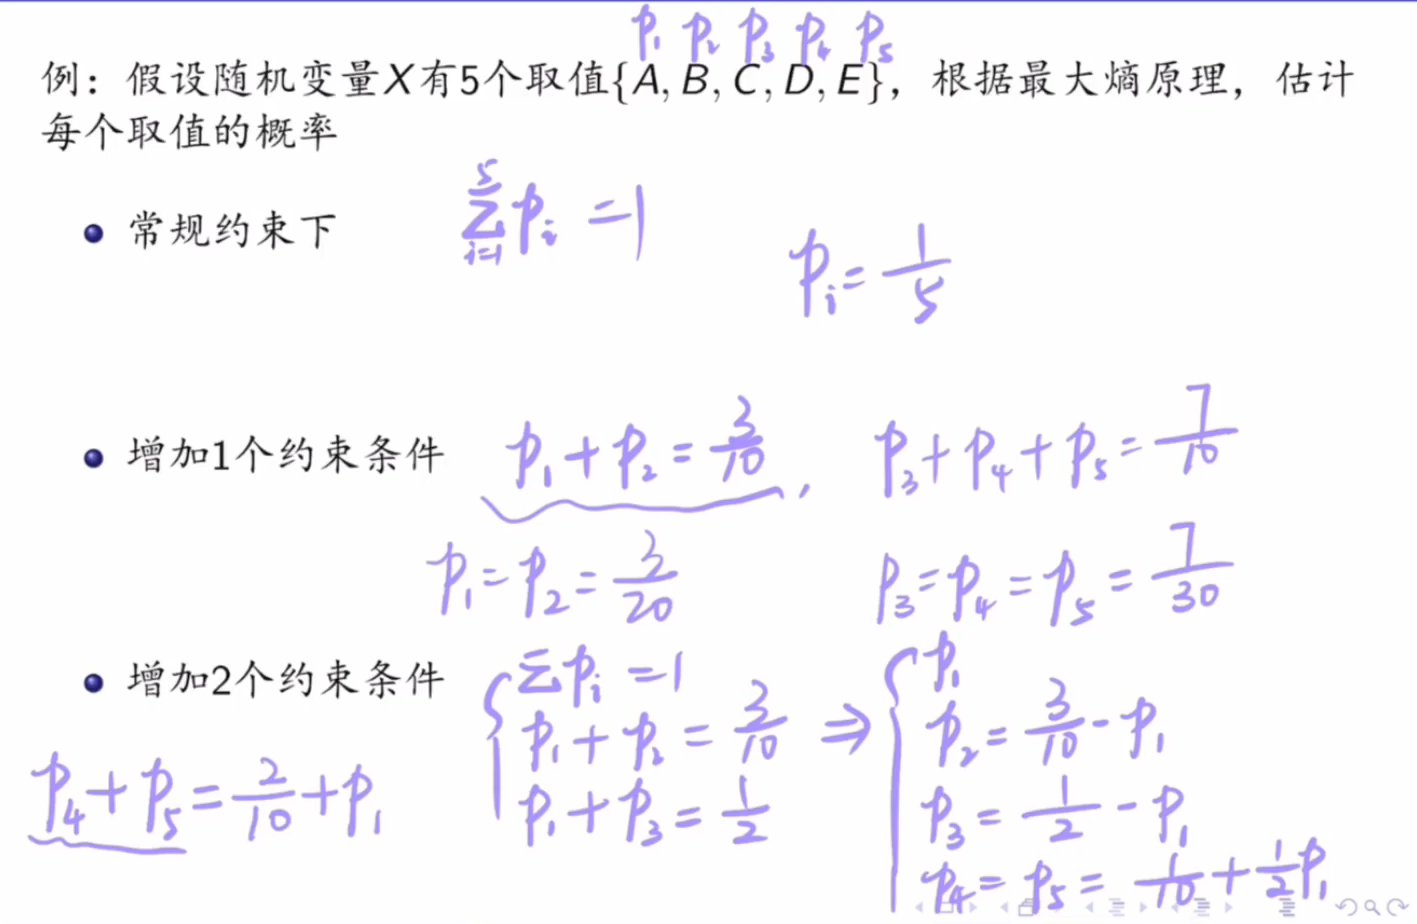 p₁ p₂ p₃ p₄ p₅
例：假设随机变量X有5个取值{A, B, C, D, E}，根据最大熵原理，估计
每个取值的概率
• 常规约束下 ∑_{i=1}^{5} pᵢ = 1
pᵢ = 1/5
• 增加1个约束条件 p₁ + p₂ = 3/10 , p₃ + p₄ + p₅ = 7/10
p₁ = p₂ = 3/20 p₃ = p₄ = p₅ = 7/30
• 增加2个约束条件 { ∑pᵢ = 1 { p₁
p₁ + p₂ = 3/10 ⇒ p₂ = 3/10 - p₁
p₄ + p₅ = 2/10 + p₁ p₁ + p₃ = 1/2 p₃ = 1/2 - p₁
p₄ = p₅ = 1/10 + 1/2 p₁